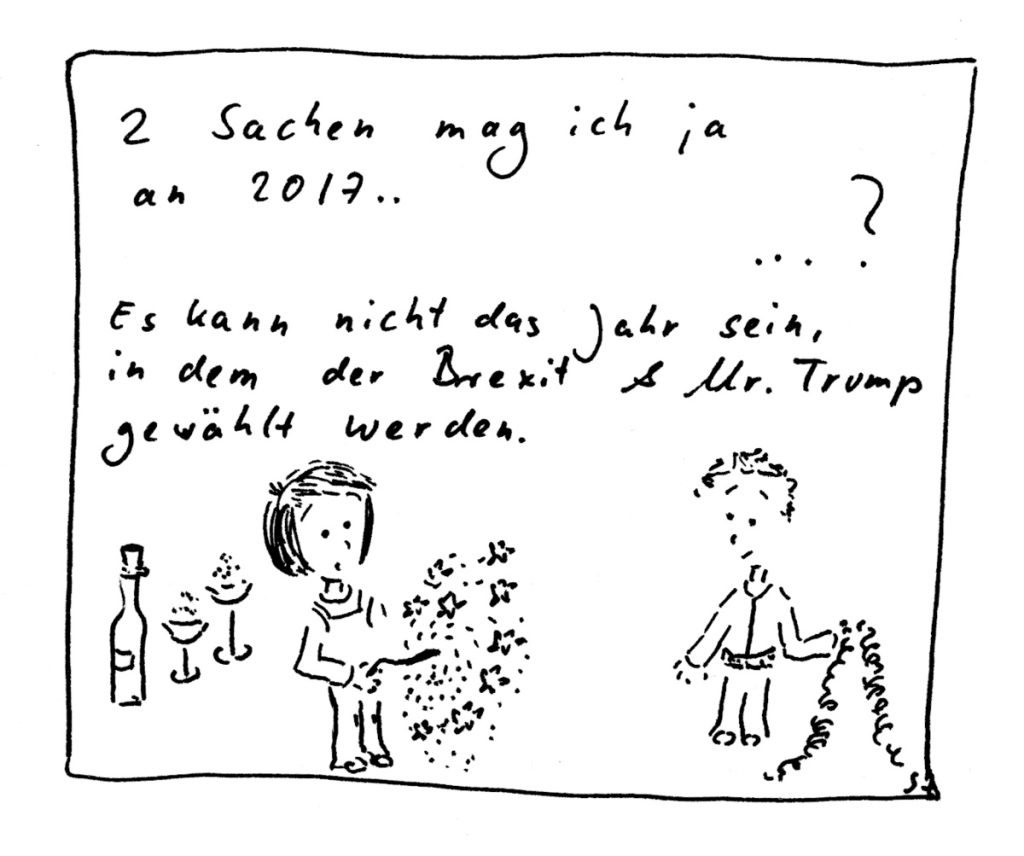 2 Sachen mag ich ja
an 2017..
... ?
Es kann nicht das Jahr sein,
in dem der Brexit & Mr. Trump
gewählt werden.